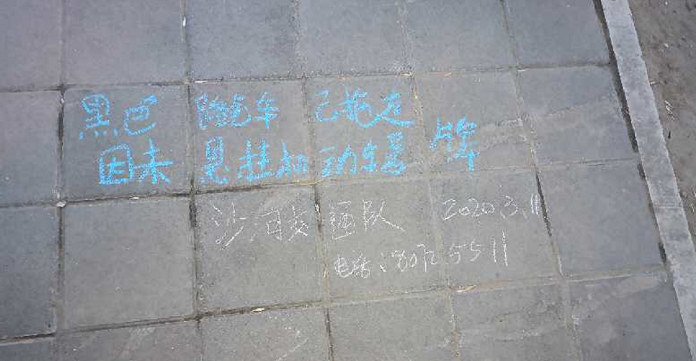 黑色 跑车 已拖走
因未悬挂机动车号牌
沙河交通队 2020.3.11
电话:80725511